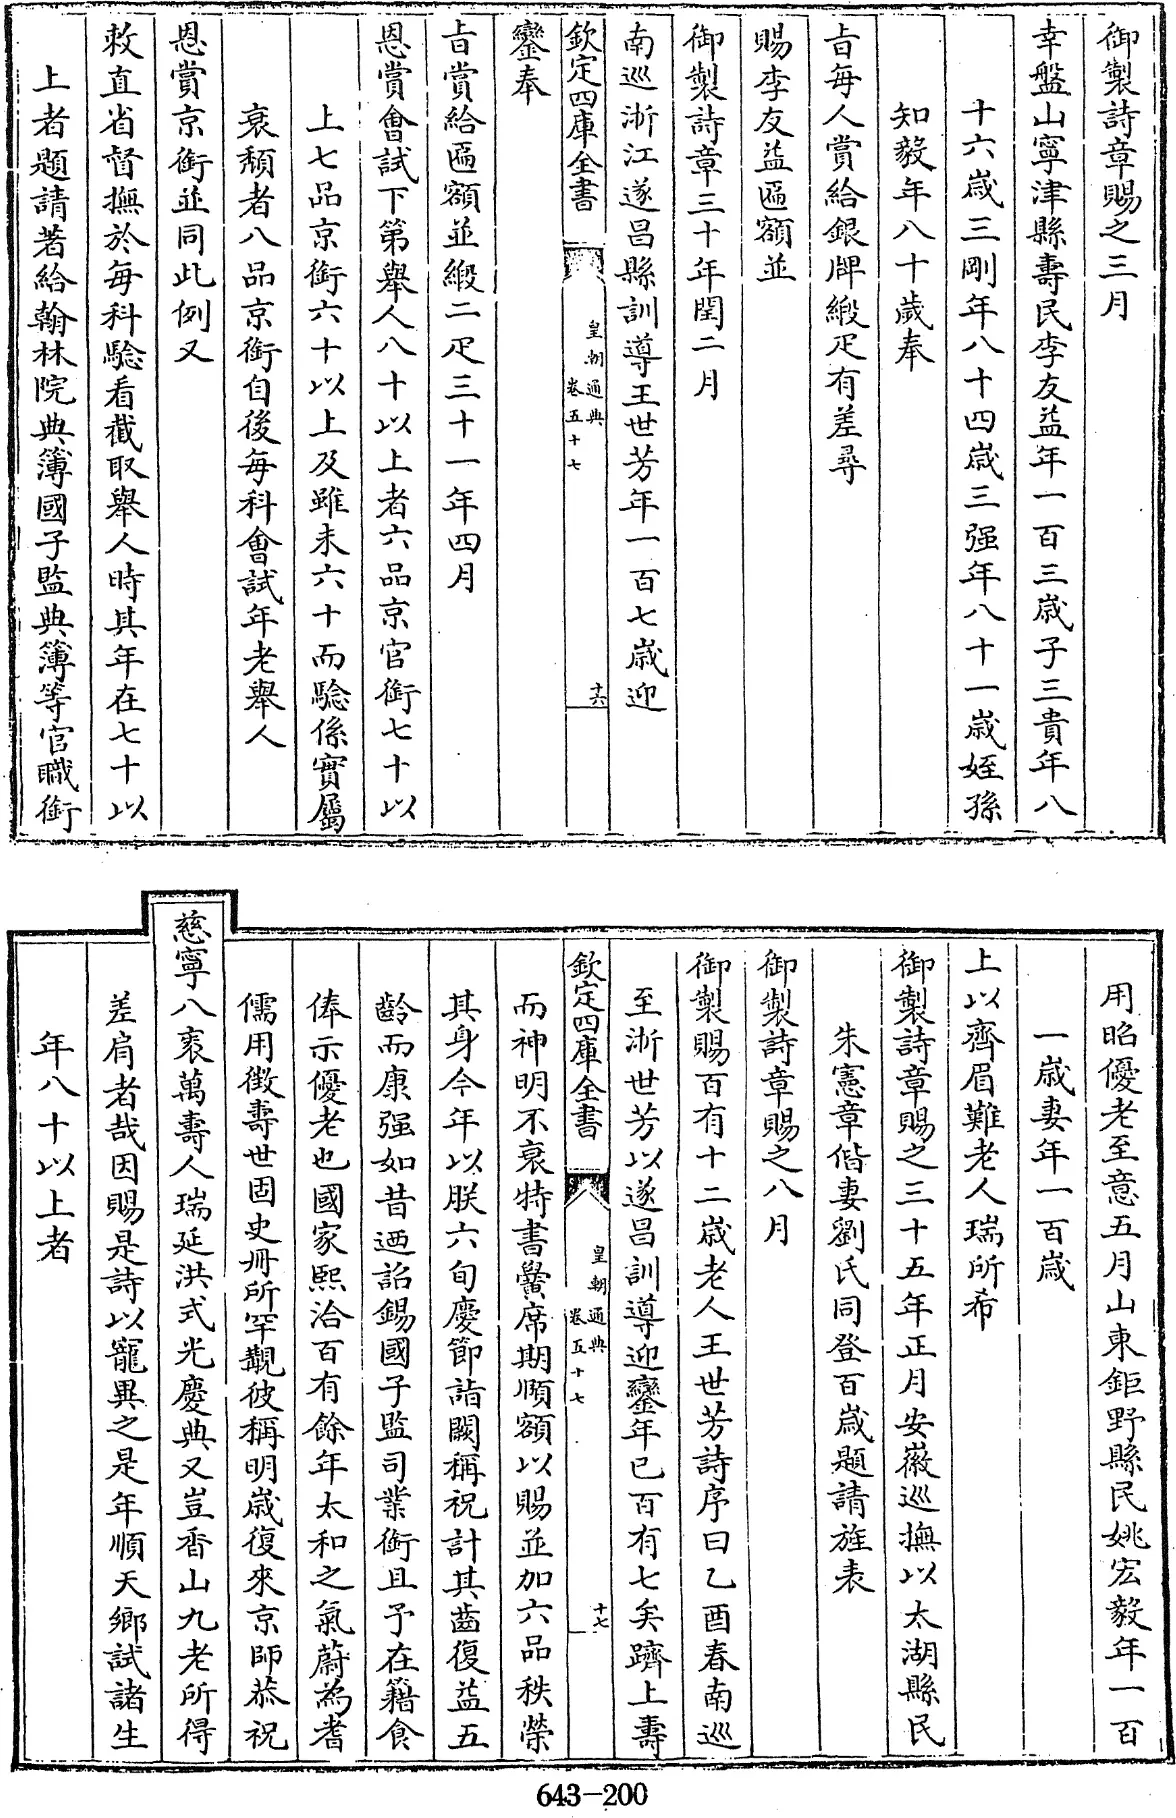 御製詩章賜之三月
幸盤山寧津縣壽民李友益年一百三歲子三貴年八
十六歲三剛年八十四歲三强年八十一歲姪孫
知毅年八十歲奉
旨每人賞給銀牌緞疋有差尋
賜李友益匾額並
御製詩章三十年閏二月
南巡浙江遂昌縣訓導王世芳年一百七歲迎
欽定四庫全書
皇朝通典
卷五十七
十六
鑾奉
旨賞給匾額並緞二疋三十一年四月
恩賞會試下第舉人八十以上者六品京官銜七十以
上七品京銜六十以上及雖未六十而驗係實屬
衰頹者八品京銜自後每科會試年老舉人
恩賞京銜並同此例又
敕直省督撫於每科驗看截取舉人時其年在七十以
上者題請著給翰林院典簿國子監典簿等官職銜
用昭優老至意五月山東鉅野縣民姚宏毅年一百
一歲妻年一百歲
上以齊眉難老人瑞所希
御製詩章賜之三十五年正月安徽巡撫以太湖縣民
朱憲章偕妻劉氏同登百歲題請旌表
御製詩章賜之八月
御製賜百有十二歲老人王世芳詩序曰乙酉春南巡
至浙世芳以遂昌訓導迎鑾年已百有七矣躋上壽
欽定四庫全書
皇朝通典
卷五十七
十七
而神明不衰特書黌席期順額以賜並加六品秩榮
其身今年以朕六旬慶節詣闕稱祝計其齒復益五
齡而康强如昔迺詔錫國子監司業銜且予在籍食
俸示優老也國家熙洽百有餘年太和之氣蔚為耆
儒用徵壽世固史冊所罕覯彼稱明歲復來京師恭祝
慈寧八袠萬壽人瑞延洪式光慶典又豈香山九老所得
差肩者哉因賜是詩以寵異之是年順天鄉試諸生
年八十以上者
643-200